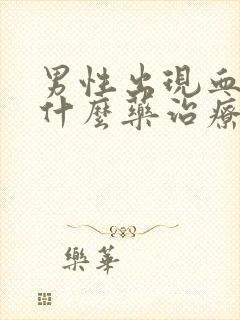 男性出現血
什麼藥治療
樂華